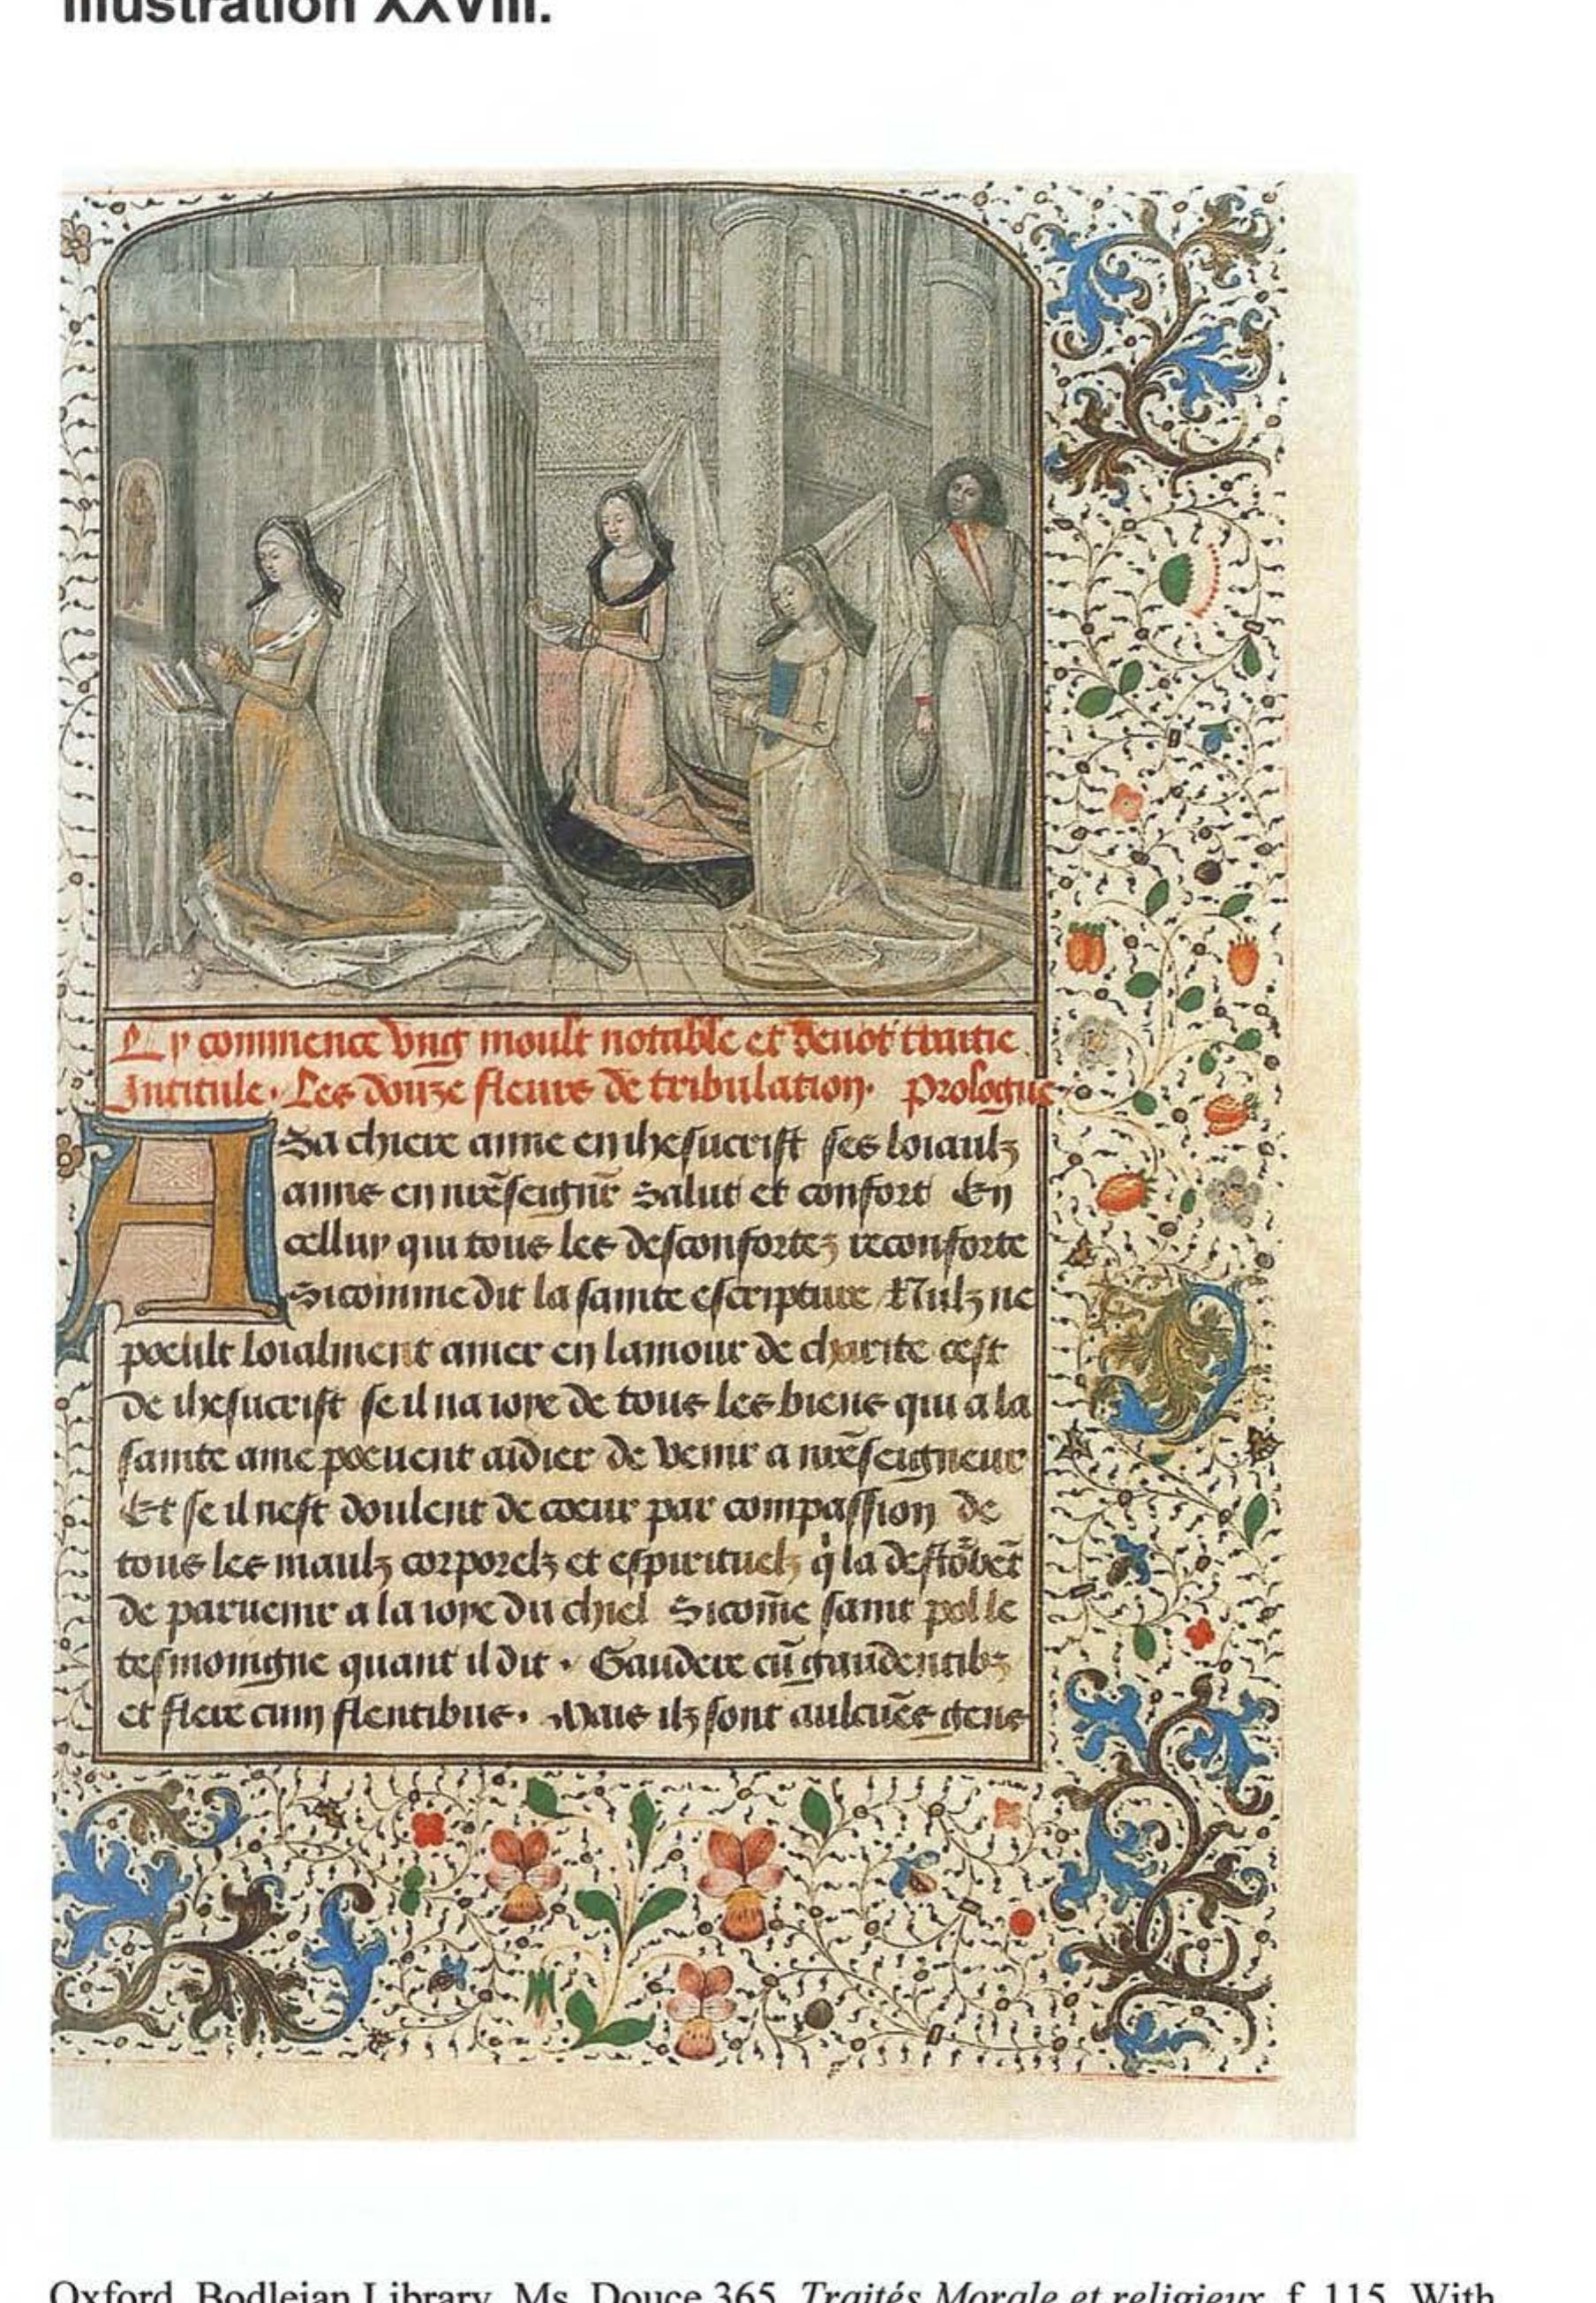 Illustration XXVIII.
Cy commence vng moult notable et deuot traitie
Intitule. Les douze fleurs de tribulation. Prologue
A Sa chiere amie en ihesucrist ses loiaulz
amis en nr̄eseignr̄ Salut et confort En
celluy qui tous les desconfortez reconforte
Sicomme dit la sainte escripture Nulz ne
poeult loialment amer en lamour de charite cest
de ihesucrist se il na ioye de tous les biens qui a la
sainte ame poeuent aidier de venir a nr̄eseigneur
Et se il nest doulent de coeur par compassion de
tous les maulz corporelz et espirituelz q̇ la destōbēt
de paruenir a la ioye du chiel Sicom̄e saint pol le
tesmoingne quant il dit. Gaudere cū gaudentibz
et flere cum flentibus. Mais ilz sont aulcūes gens
Oxford, Bodleian Library, Ms. Douce 365, Traités Morale et religieux, f. 115. With